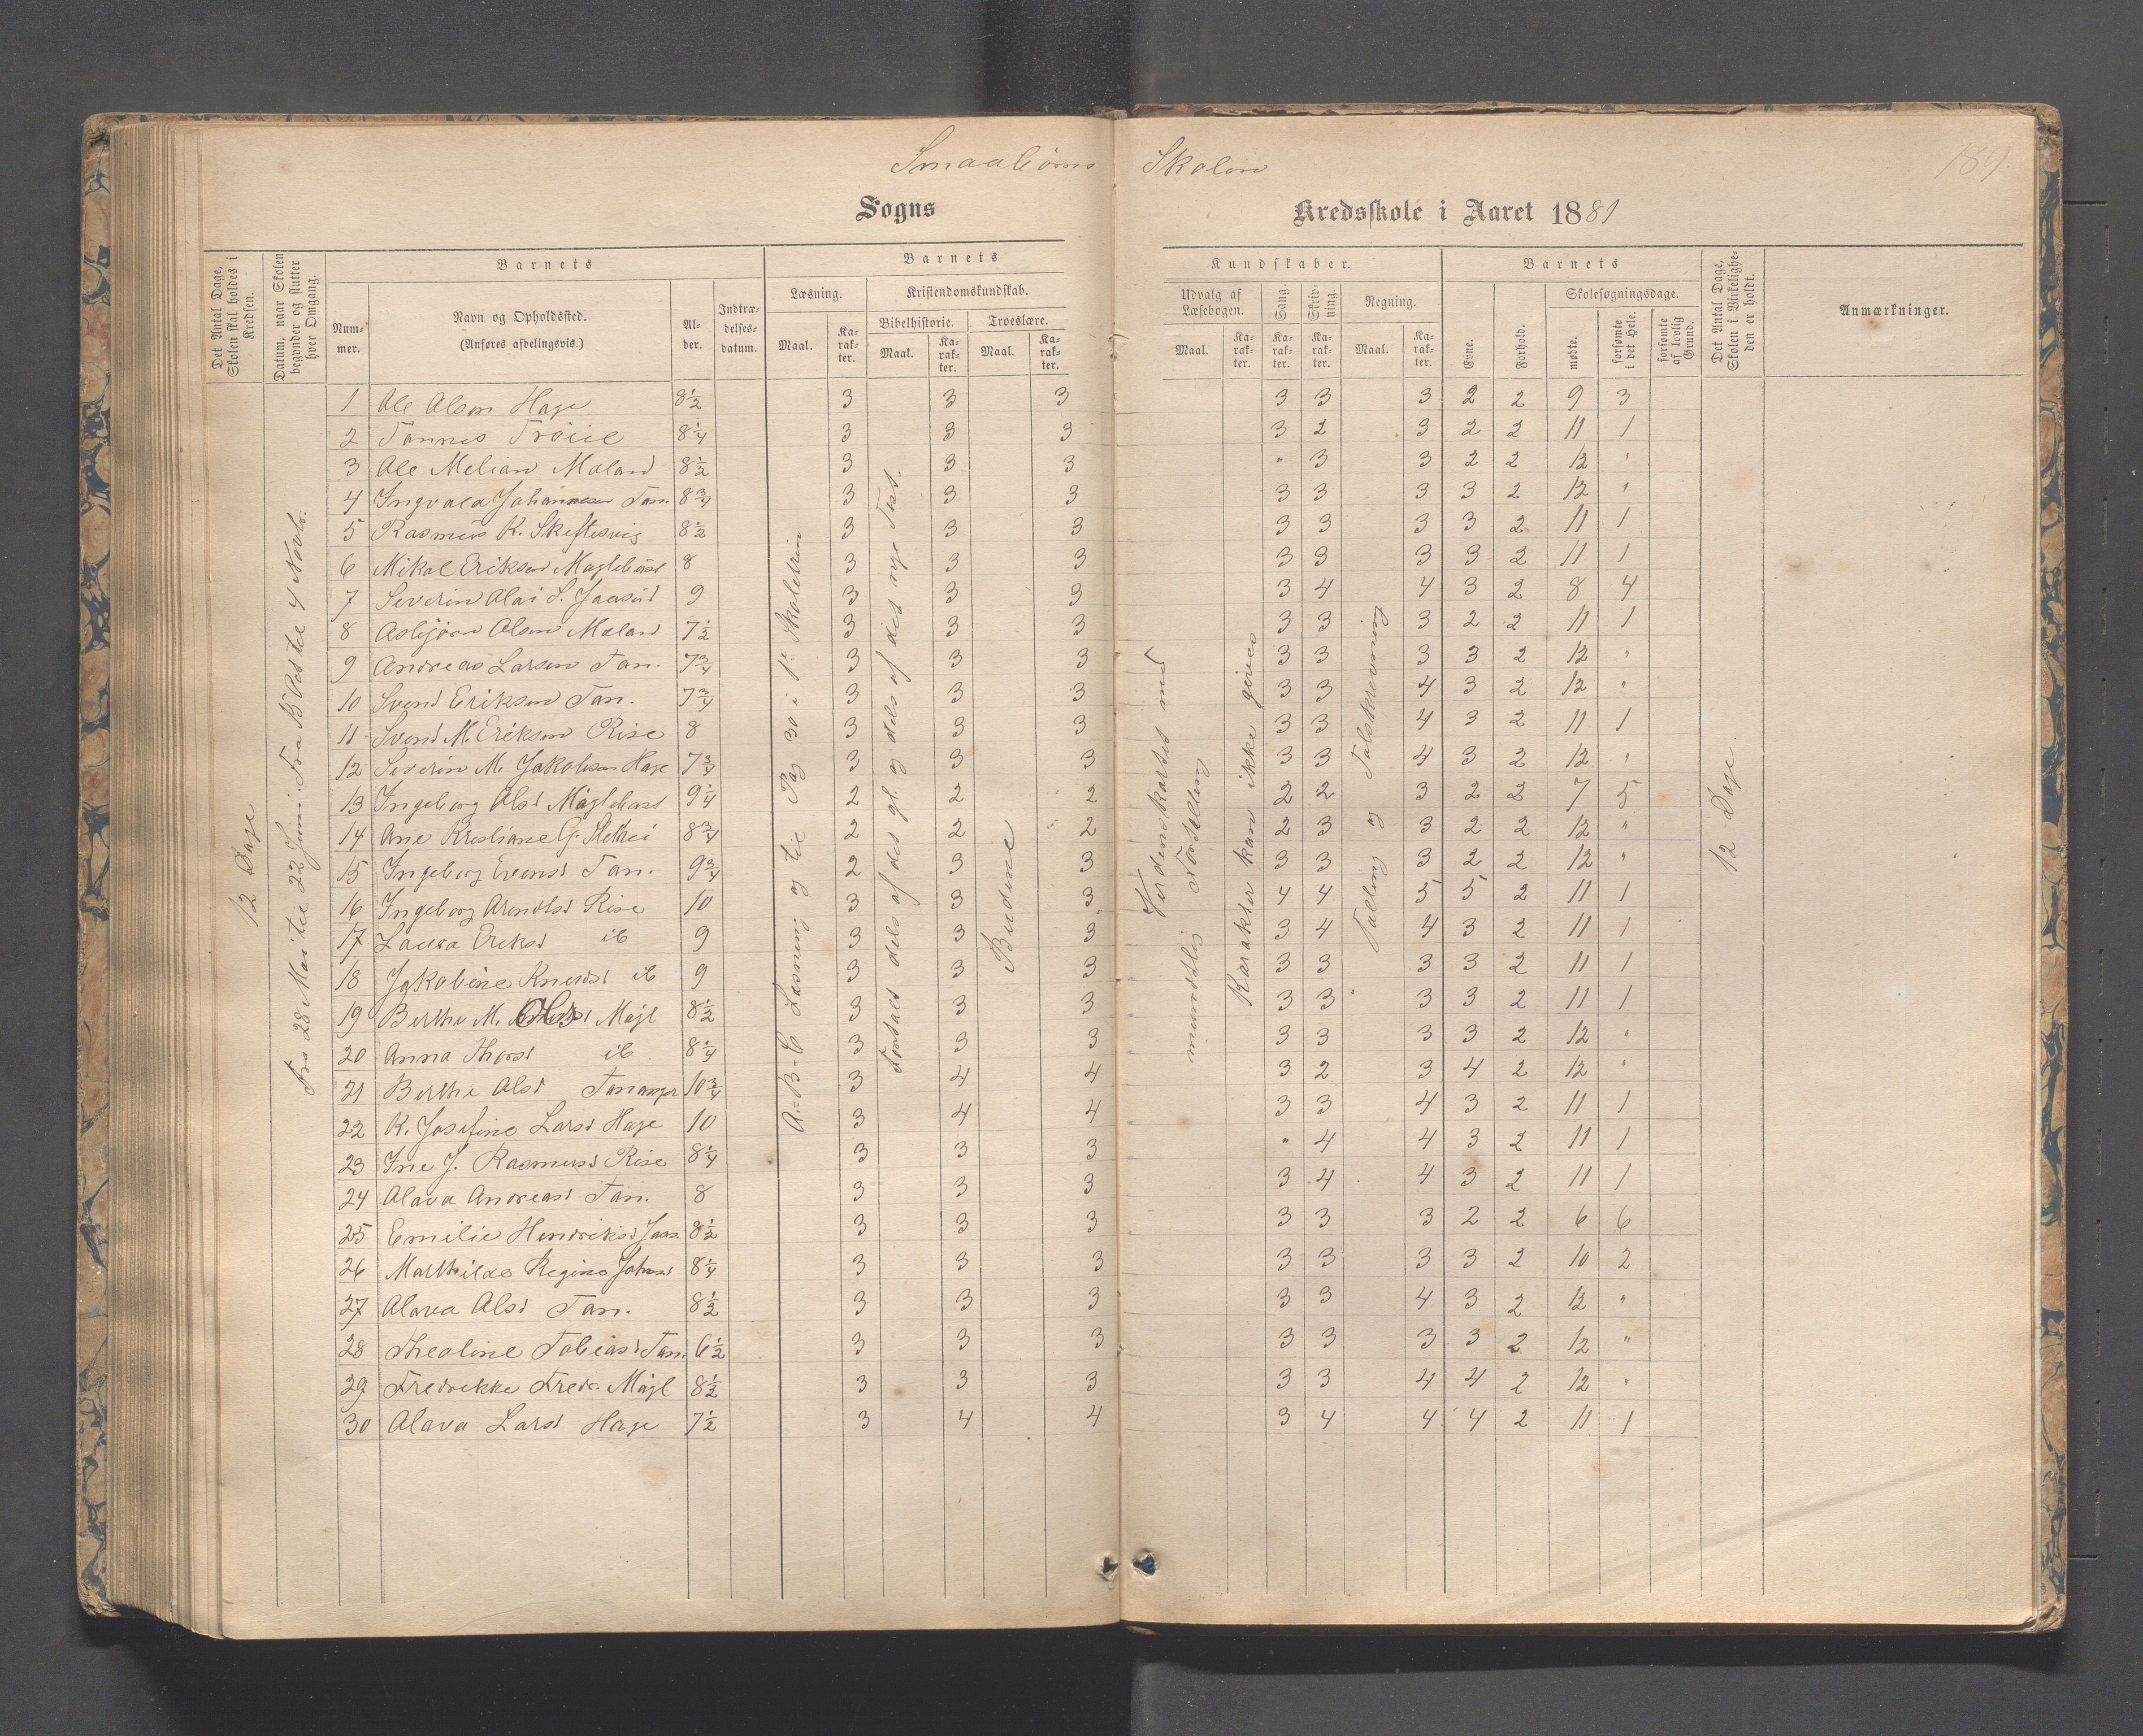 Smaabørns Skolen 189.
Sogns Kredsskole i Aaret 1881
Det Antal Dage, Skolen skal holdes i Kredsen.
Datum, naar Skolen begynder og slutter hver Omgang.
Barnets
Num-mer.
Navn og Opholdssted.
(Anføres afdelingsvis.)
Al-der.
Indtræ-delses-datum.
Barnets
Læsning.
Maal.
Ka-rak-ter.
Kristendomskundskab.
Bibelhistorie.
Maal.
Ka-rak-ter.
Troeslære.
Maal.
Ka-rak-ter.
Kundskaber.
Udvalg af Læsebogen.
Maal.
Ka-rak-ter.
Sang.
Ka-rak-ter.
Skriv-ning.
Ka-rak-ter.
Regning.
Maal.
Ka-rak-ter.
Barnets
Evne.
Forhold.
Skolesøgningsdage.
mødte.
forsømte i det Hele.
forsømte af lovlig Grund.
Det Antal Dage, Skolen i Virkelighe-den er holdt.
Anmærkninger.
12 Dage
Fra 28 Mai til 22 Juni. Fra 15 Oct til 4 Novb.
A-B-C Læsning og til Pag 30 i 1e Skoletrin
Fortalt dels af det gl. og dels af det nye Test.
Budene
mundtlig Fortelling
Karakter kan ikke gives
Talling og Talskrevning
12 Dage.
1 Ole Olsen Hage 8½ 3 3 3 3 3 3 2 2 9 3
2 Tønnes Trøiel 8¼ 3 3 3 3 2 3 2 2 11 1
3 Ole Melian Møland 8½ 3 3 3 " 3 3 2 2 12 "
4 Ingvald Johannesen Tan. 8¾ 3 3 3 3 3 3 3 2 12 "
5 Rasmus K. Skeftesvig 8½ 3 3 3 3 3 3 3 2 11 1
6 Mikal Eriksen Maglebust 8 3 3 3 3 3 3 3 2 11 1
7 Severin Olai S. Jaasund 9 3 3 3 3 4 4 3 2 8 4
8 Asbjørn Olsen Møland 7½ 3 3 3 3 3 3 2 2 11 1
9 Andreas Larsen Tan. 7¾ 3 3 3 3 3 3 3 2 12 "
10 Svend Eriksen Tan. 7¾ 3 3 3 3 3 4 3 2 12 "
11 Svend M. Eriksen Rise 8 3 3 3 3 3 4 3 2 11 1
12 Severin M. Jakobsen Hage 7¾ 3 3 3 3 3 4 3 2 12 "
13 Ingeborg Olsd Maglebust 9¼ 2 2 2 2 2 3 2 2 7 5
14 Ane Kristiane G. 8¾ 2 2 2 2 3 3 2 2 12 "
15 Ingeborg Evensd Tan. 9¾ 2 3 3 3 3 3 2 2 12 "
16 Ingeborg Arndtsd Rise 10 3 3 3 4 4 5 5 2 11 1
17 Laura Eriksd ib 9 3 3 3 3 4 4 3 2 11 1
18 Jakobine Knudsd ib 9 3 3 3 3 3 3 3 2 11 1
19 Berthe M. Ols Magl 8½ 3 3 3 3 3 3 3 2 11 1
20 Anna Thorsd ib 8¼ 3 3 3 3 3 3 3 2 12 "
21 Berthe Olsd Tananger 10¾ 3 4 4 3 2 3 4 2 12 "
22 K. Josefine Larsd Hage 10 3 4 4 3 3 4 3 2 11 1
23 Ine J. Rasmusd Rise 8¼ 3 3 3 " 4 4 3 2 11 1
24 Olava Andreasd Tan. 8 3 3 3 3 4 4 3 2 11 1
25 Emilie Hendriksd Jaas. 8½ 3 3 3 3 3 3 2 2 6 6
26 Marthilde Regine Johnsd 8¼ 3 3 3 3 3 3 3 2 10 2
27 Olava Olsd Tan. 8½ 3 3 3 3 3 4 3 2 12 "
28 Theoline Tobiasd Tan. 6½ 3 3 3 3 3 3 3 2 12 "
29 Fredrekke Fredr. Magl 8½ 3 3 3 3 3 4 4 2 12 "
30 Olava Larsd Hage 7½ 3 4 4 3 4 4 4 2 11 1